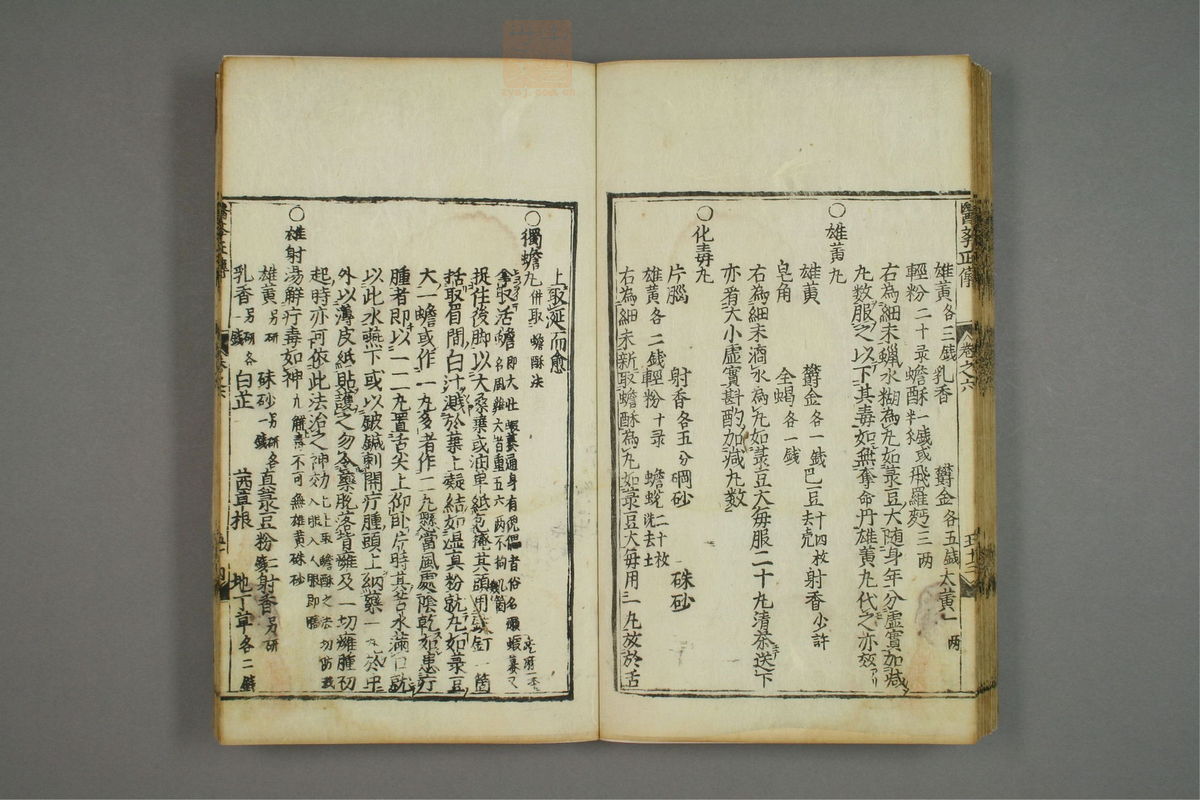 醫學正傳
卷之六
雄黃各三錢乳香 欝金各五錢大黃一兩
輕粉二十彔蟾酥一錢或半杀飛羅麪三兩
右為細末蠟水糊為丸如菉豆大随身年分虛實加減
丸數服之以下其毒如無奪命丹雄黃丸代之亦效
○雄黃丸
雄黃 欝金各一錢巴豆十四枚去壳射香少許
皂角 全蝎各一錢
右為細末滴水為丸如菉豆大每服二十丸清茶送下
亦看大小虛實斟酌加減丸數
○化毒丸
片腦 射香各五分硼砂 硃砂
雄黃各二錢輕粉十彔 蟾蛻二十枚洗去土
右為細末新取蟾酥為丸如菉豆大每用一丸放於舌
上取涎而愈
○獨蟾丸併取蟾酥法
拿取活蟾
捉住後脚以大桑葉或油单紙包掩其頭用或釘一箇
括取眉間白汁濺於葉上凝結如濕真粉就丸如菉豆
大一蟾或作一丸多者作二丸懸當風處陰乾如患疔
腫者即以一二丸置舌尖上仰卧片時其苦水滿口就
以此水嚥下或以鈹鍼刺開疔腫頭上納藥一丸於中
外以薄皮紙貼護之勿令藥脫落背癰及一切癰腫初
起時亦可依此法治之神効
○雄射湯解疔毒如神
雄黃另研 硃砂另研各一錢真菉豆粉二錢射香另研
乳香一錢 白芷 茜真根 地丁草各二錢